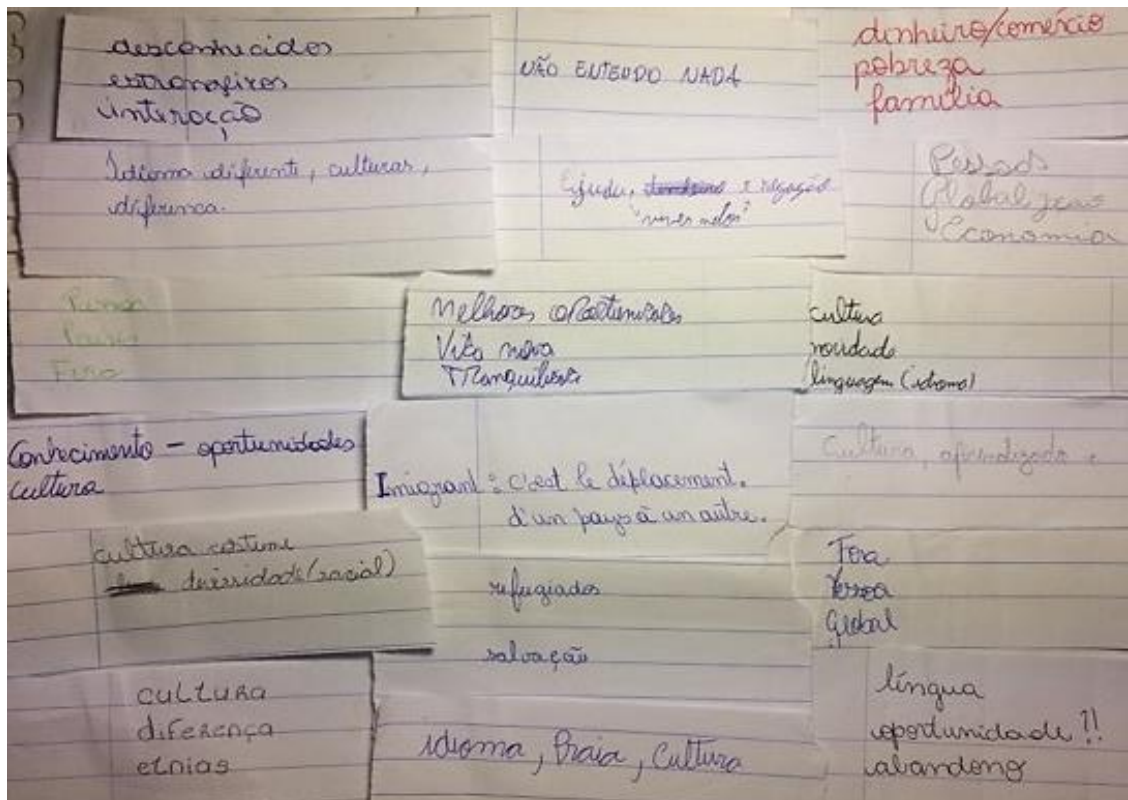 desconhecidos
estrangeiros
interação
NÃO ENTENDO NADA
dinheiro/comércio
pobreza
família
Idioma diferente, culturas,
diferença.
Ajuda, e
"viver melor"
Pessoas
Economia
Fera
Melhores
Vida nova
cultura
linguagem (idioma)
Conhecimento - oportunidades
cultura
Imigrant : c'est le déplacement.
d'un pays à un autre.
Cultura, aprendizado e
cultura costume
diversidade (racial)
refugiados
salvação
Fora
Global
cultura
diferença
etnias
idioma, Praia, Cultura
língua
oportunidade?!!
abandono